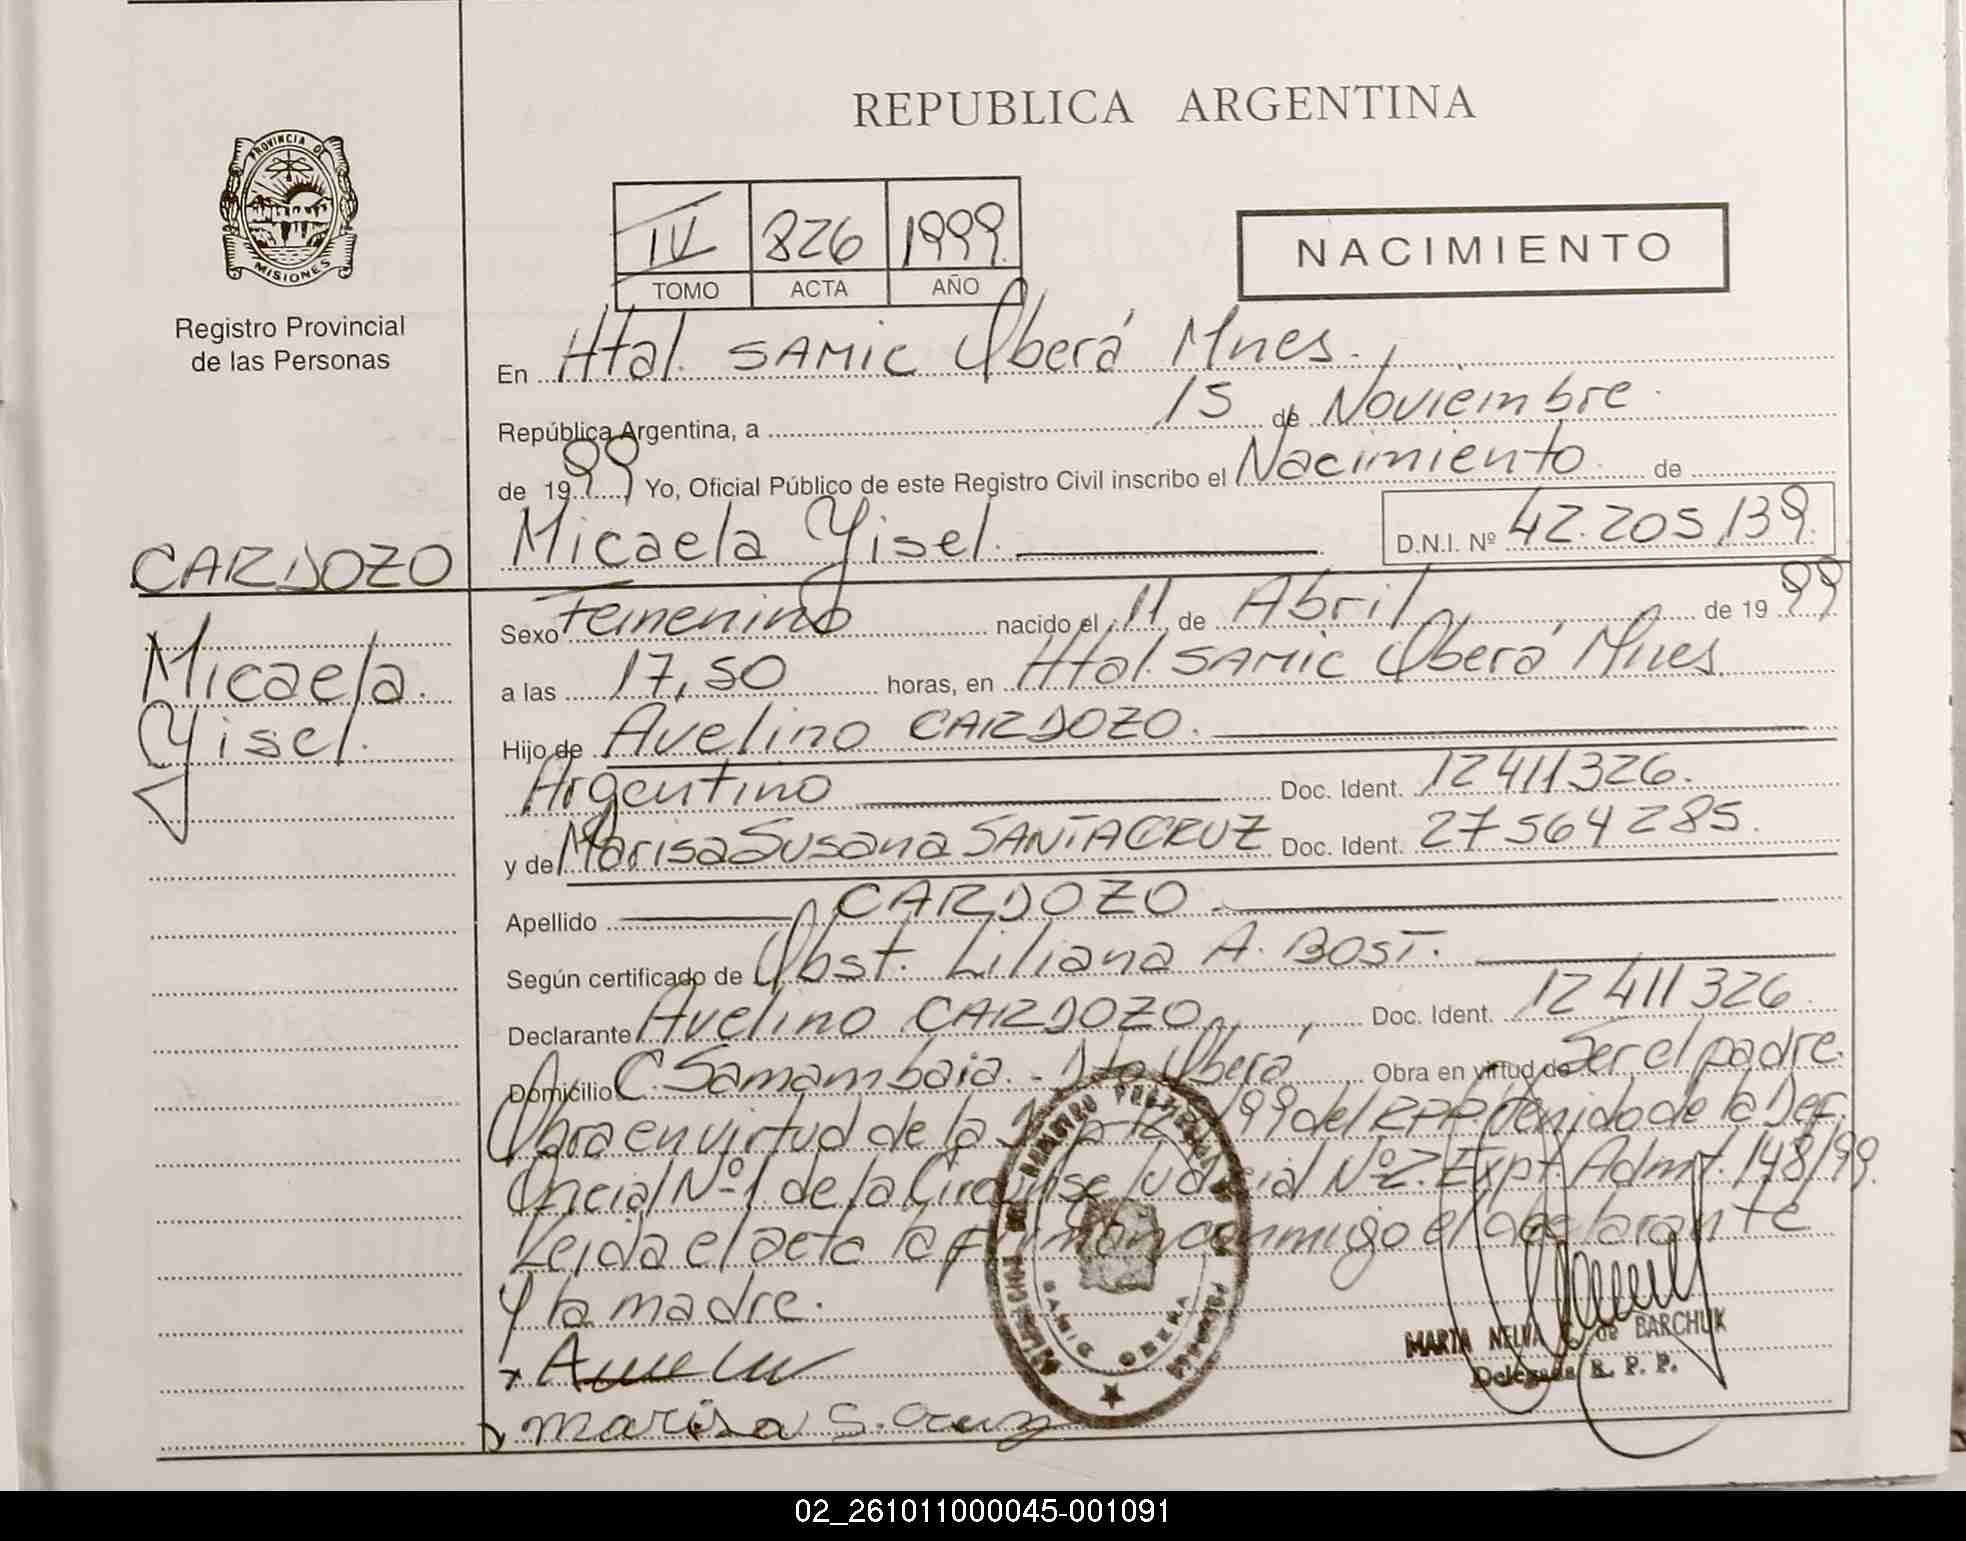 REPUBLICA ARGENTINA
PROVINCIA DE
MISIONES
Registro Provincial
de las Personas
IV 826 1999
TOMO ACTA AÑO
NACIMIENTO
En Htal. SAMIC Oberá Mnes.
República Argentina, a 15 de Noviembre
de 1999 Yo, Oficial Público de este Registro Civil inscribo el Nacimiento de
Micaela Yisel. D.N.I. Nº 42.205.139
CARDOZO
Micaela
Yisel.
Sexo Femenino nacido el 11 de Abril de 1999
a las 17,50 horas, en Htal. SAMIC Oberá Mnes
Hijo de Avelino CARDOZO.
Argentino Doc. Ident. 12411326.
y de Marisa Susana SANTACRUZ Doc. Ident. 27564285.
Apellido CARDOZO.
Según certificado de Obst. Liliana A. BOST.
Declarante Avelino CARDOZO Doc. Ident. 12411326.
Domicilio C. Samambaia. Dto Oberá Obra en virtud de Ser el padre.
Obra en virtud de la /99 del RPP. tenido de la Def.
Oficial Nº 1 de la Circunsc Judicial Nº 2. Expt. Admt. 148/99.
Leida el acta la firman conmigo el declarante
y la madre.
marisa S. Cruz
SAMIC OBERA
MARTA NELIDA de BARCHUK
Delegada R. P. P.
02_261011000045-001091